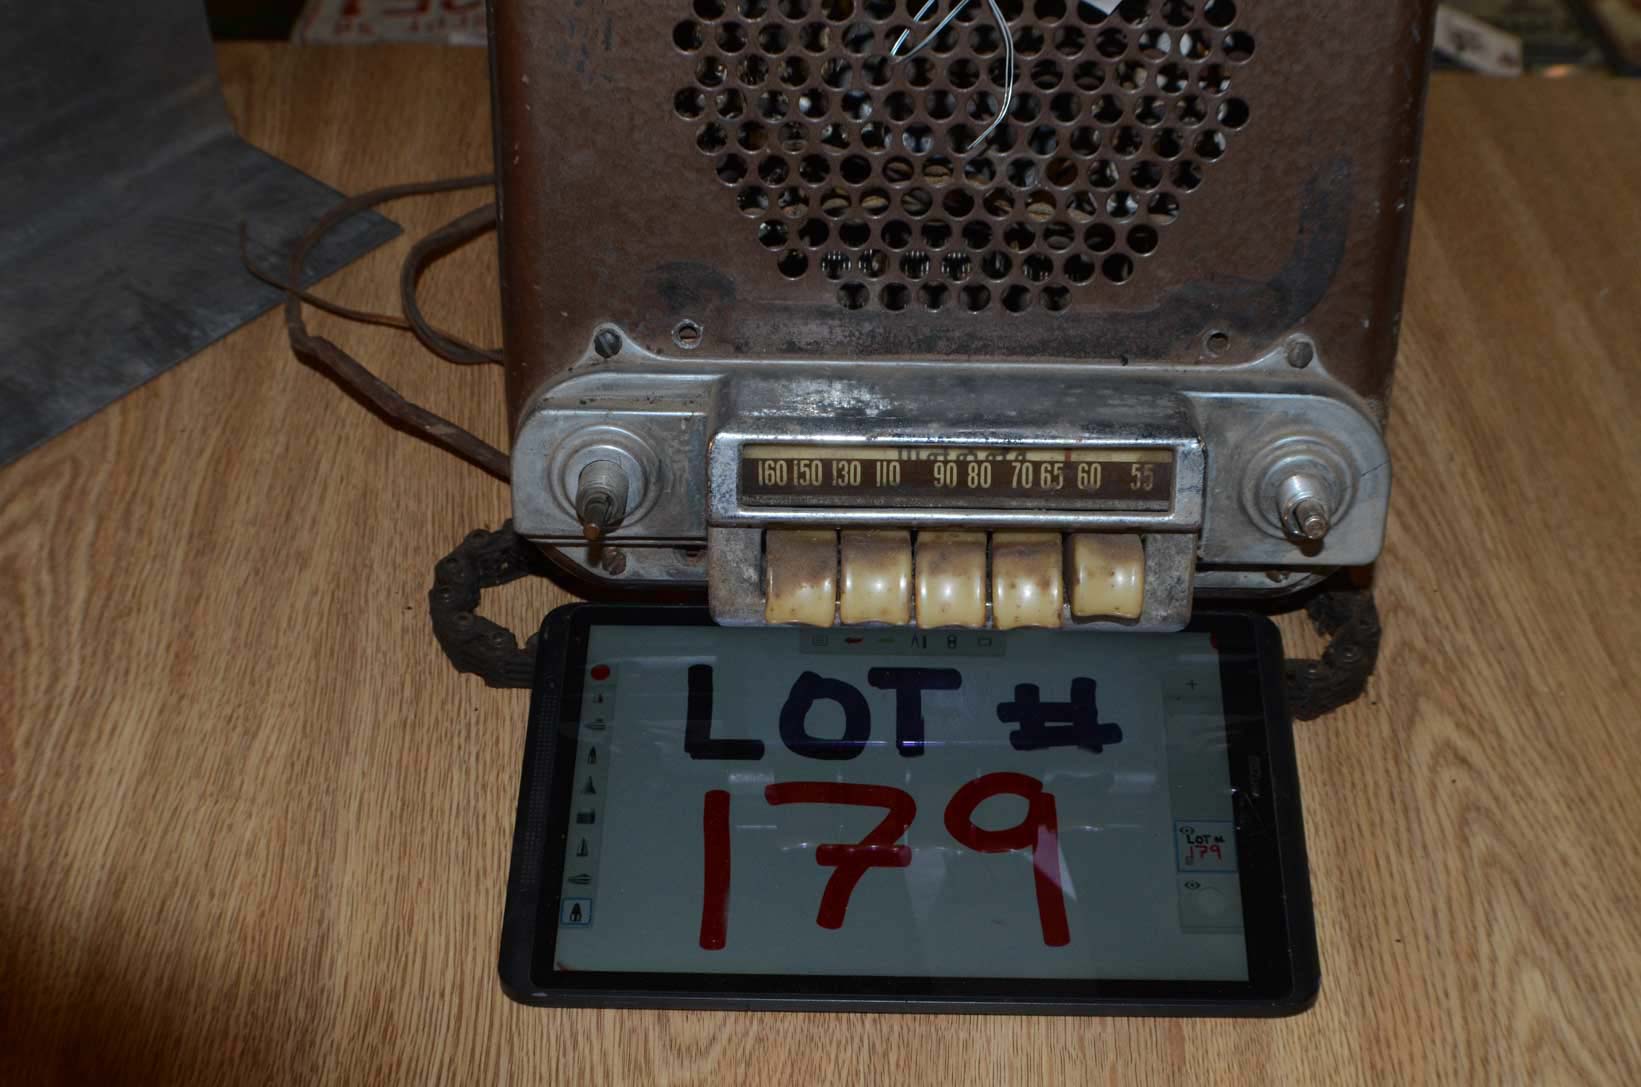 160 150 130 110 90 80 70 65 60 55
LOT #
179
LOT #
179